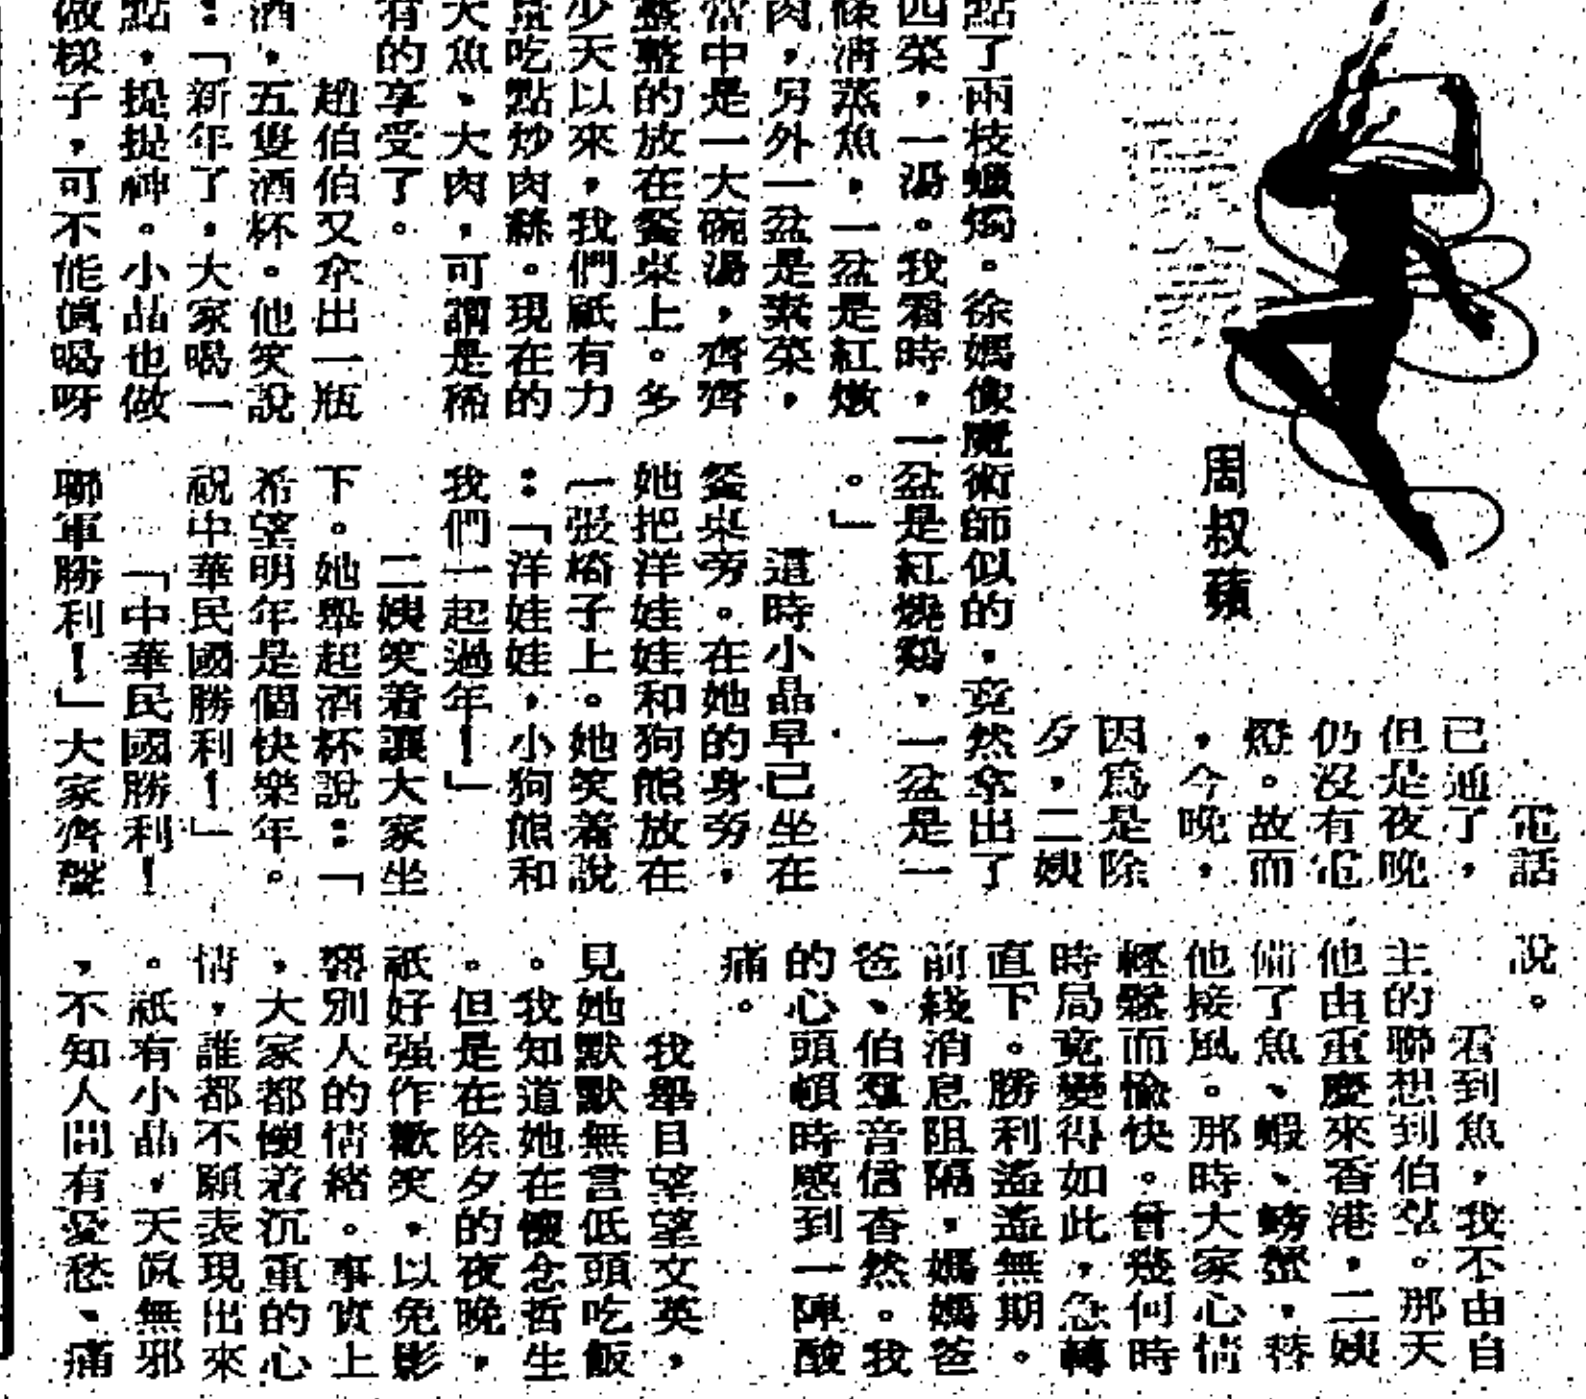 周叔蘋
電話
已通了，
但是夜晚
仍沒有電
燈。故而
，今晚，
因爲是除
夕，二姨
點了兩枝蠟燭。徐媽像魔術師似的，竟然拿出了
四菜，一湯。我看時，一盆是紅燒鷄，一盆是一
條清蒸魚，一盆是紅燉
肉，另外一盆是素菜，
當中是一大碗湯，齊齊
整整的放在餐桌上。多
少天以來，我們祇有力
量吃點炒肉絲。現在的
大魚、大肉，可謂是稀
有的享受了。
趙伯伯又拿出一瓶
酒，五隻酒杯。他笑說
：「新年了，大家喝一
點，提提神。小晶也做
做樣子，可不能眞喝呀
。」
這時小晶早已坐在
餐桌旁。在她的身旁，
她把洋娃娃和狗熊放在
一張椅子上。她笑着說
：「洋娃娃，小狗熊和
我們一起過年！」
二姨笑着讓大家坐
下。她舉起酒杯說：「
希望明年是個快樂年。
祝中華民國勝利！」
「中華民國勝利！
聯軍勝利！」大家齊聲
說。
看到魚，我不由自
主的聯想到伯羣。那天
他由重慶來香港，二姨
備了魚、蝦、螃蟹，替
他接風。那時大家心情
輕鬆而愉快。曾幾何時
時局竟變得如此，急轉
直下。勝利遙遙無期。
前綫消息阻隔，媽媽爸
爸、伯羣音信杳然。我
的心頭頓時感到一陣酸
痛。
我舉目望望文英，
見她默默無言低頭吃飯
。我知道她在懷念哲生
。但是在除夕的夜晚，
祇好强作歡笑，以免影
響別人的情緒。事實上
，大家都懷着沉重的心
情，誰都不願表現出來
。祇有小晶，天眞無邪
，不知人間有憂愁、痛